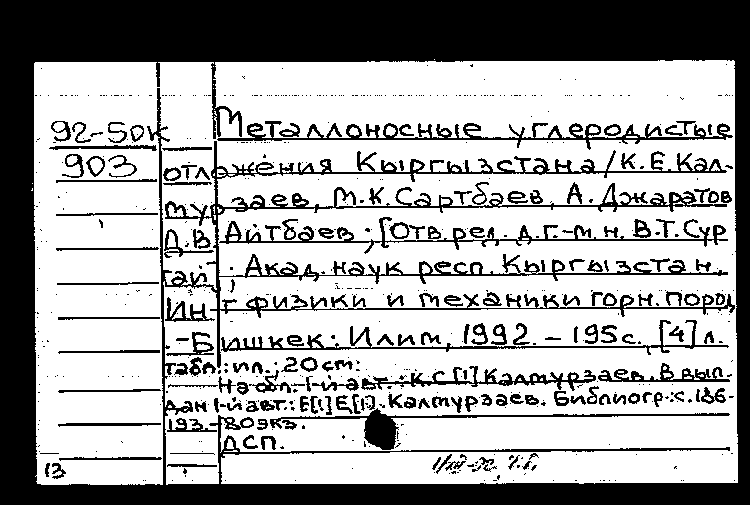 92-50к Металлоносные углеродистые
903 отложения Кыргызстана/К.Е.Кал-
мурзаев, М.К.Сартбаев, А.Джаратов
Д.В.Айтбаев; [Отв.ред. д.г.-м.н. В.Т.Сур
гай]; Акад.наук респ.Кыргызстан,
Ин-т физики и механики горн.пород
.-Бишкек: Илим, 1992.-195с., [4]л.
табл.:ил.; 20 см.
На обл. 1-й авт.: К.С[!] Калмурзаев. В вып.
дан 1-й авт.: Е[!]Е[!]. Калмурзаев. Библиогр.:с.186-
193.-80экз.
ДСП.
13